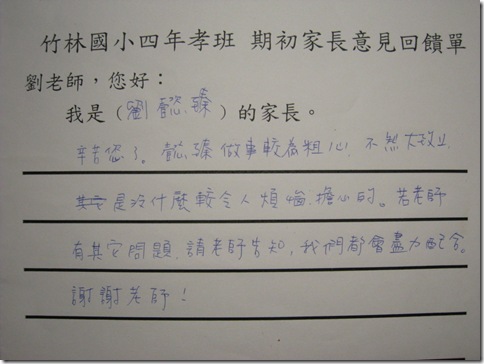 竹林國小四年孝班 期初家長意見回饋單
劉老師，您好：
我是（劉懿臻）的家長。
辛苦您了。懿臻做事較為粗心，不然大致上
其它是沒什麼較令人煩惱、擔心的。若老師
有其它問題，請老師告知，我們都會盡力配合。
謝謝老師！